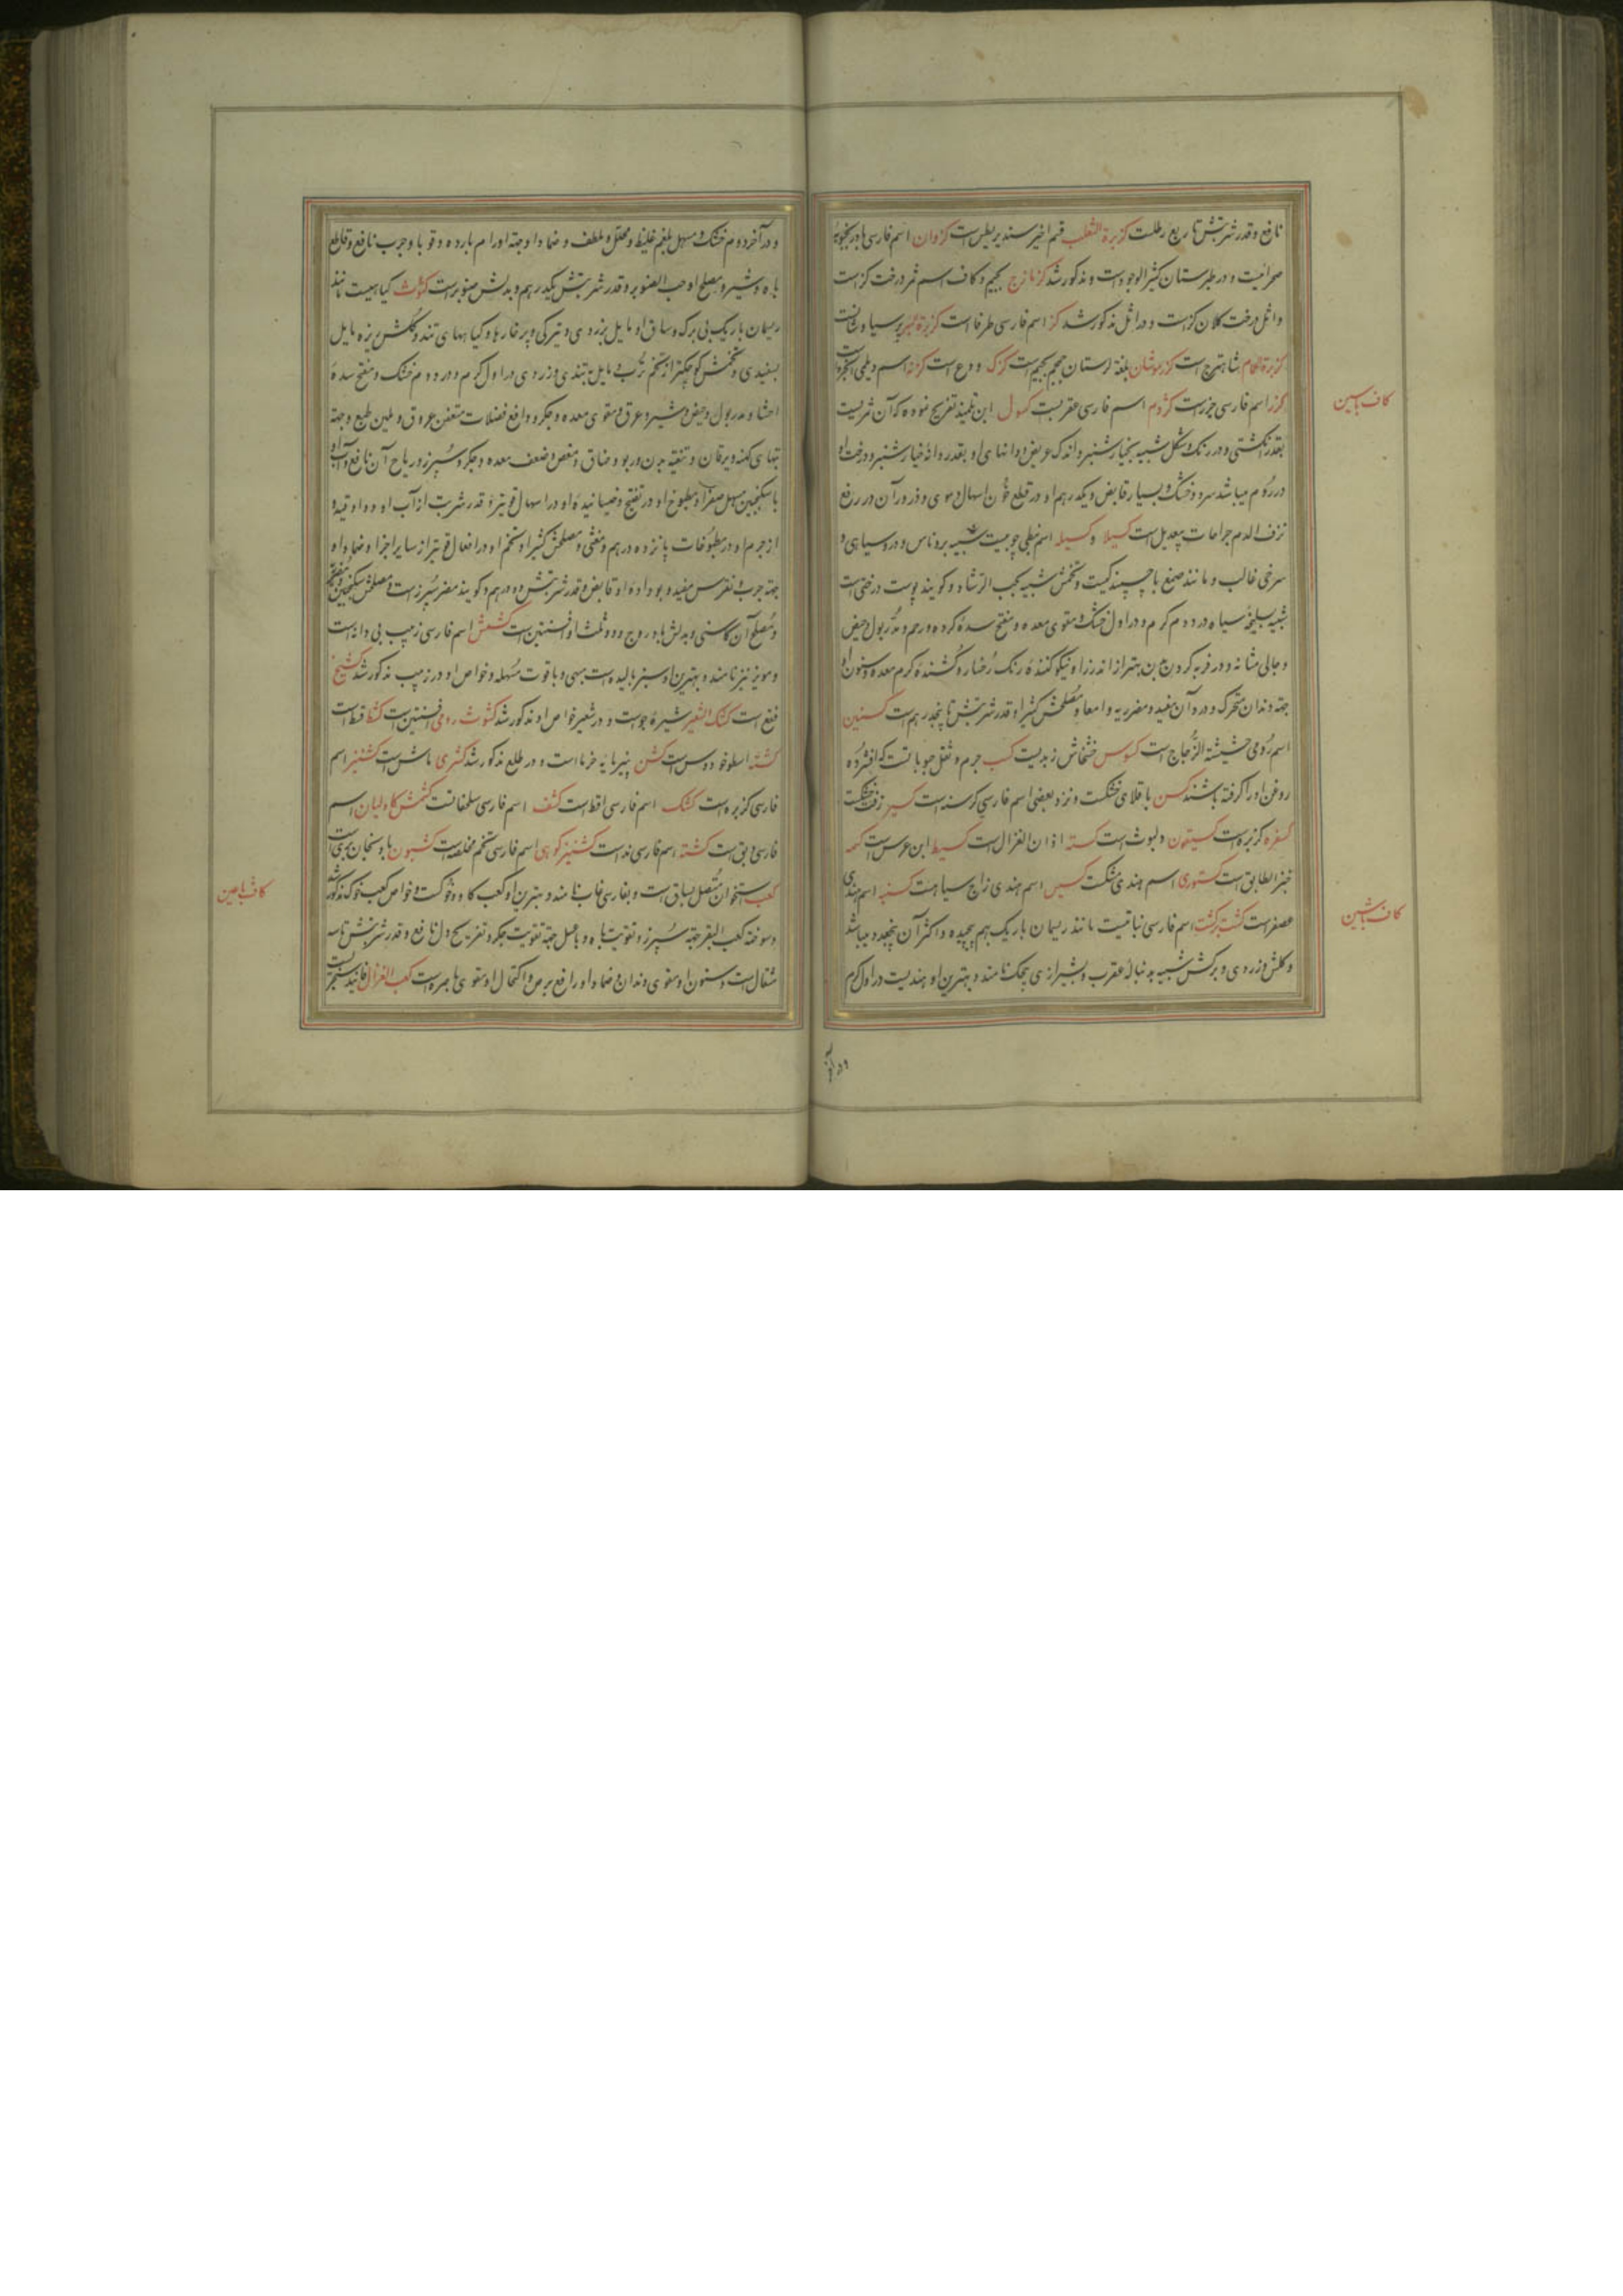 نافع و قدر شربتش تا ربع رطلست کزبرة الثعلب قسم اخیر سندیریطس است کزوان اسم فارسی بادرنجبویه
صحرائیست و در طبرستان کثیر الوجود است و مذکور شد کزمازج بجیم و کاف اسم ثمر درخت کز است
و اثل درخت کلان کز است و در اثل مذکور شد کز اسم فارسی طرفا است کزبرة البیر پرسیاوشانست
کزبرة الحمام شاهترج است بلغة لرستان است کزک و دع است کزنه اسم دیلمی انجره است
کزر اسم فارسی جزر است کژدم اسم فارسی عقربست کسول ابن تلمیذ تصریح نموده که آن ثمریست
بقدر انگشتی و در رنک و شکل شبیه بخیارشنبر و اندک عریض و دانهای او بقدر دانۀ خیارشنبر و درخت او
در روم میباشد سرد و خشک و بسیار قابض و یکدرهم او در قطع خون اسهال دموی و ذرور آن در رفع
نزف الدم جراحات بیعدیل است کسیلا و کسیله اسم نبطی چوبیست شبیه بروناس و در و سیاهی و
سرخی غالب و مانند صمغ با چسپندکیست و تخمش شبیه بحب الرشاد و کویند پوست درختی است
شبیه بسلیخه سیاه در دوم کرم و در اول خشک و مقوی معده و مفتح سدۀ کرده و رحم و مدر بول و حیض
و جالی مثانه و در فربه کردن بدن بهتر از انذرزا و نیکو کنندۀ رنک رخسار و کشندۀ کرم معده و سنون او
جهة دندان متحرک و درد آن مفید و مضر ریه و امعا و مصلحش کثیرا و قدر شربتش تا پنجدرهم است کسنین
اسم رومی حشیشة الزجاج است کسوس خشخاش زبدیست کسب جرم و ثقل حبوباتست که افشرده
روغن او را کرفته باشند کسن باقلای خشکست و نزد بعضی اسم فارسی کرسنه است کسیر زفت خشکست
کسفره کزبره است کسیقون دلبوث است کسته اذان الغزال است کسیط ابن عرس است کسمه
خبز الطابق است کستوری اسم هندی مشکست کسیس اسم هندی زاج سیاهست کسنبه اسم هندی
عصفر است کشت برکشت اسم فارسی نباتیست مانند ریسمان باریک بهم پیچیده و اکثر آن پنج عدد میباشد
و کلش زردی و برکش شبیه به دنبالۀ عقرب و بشیرازی پیچک نامند و بهترین او هندیست در اول کرم
کاف باسین
کاف باشین
و در آخر
و در آخر دوم خشک و مسهل بلغم غلیظ و محلل و ملطف و ضماد او جهة اورام بارده و قوبا و جرب نافع و قاطع
باه و شیر و مصلح او حب الصنوبر و قدر شربتش یکدرهم و بدلش صنوبر است کشوث کیاهیست مانند
ریسمان باریک بی برک و ساق او مایل بزردی و تیرکی و بر خارها و کیاههای تند و کلش ریزه مایل
بسفیدی و تخمش کوچکتر از تخم ترب و مایل بتندی و زردی در اول کرم و در دوم خشک و مفتح سدۀ
احشا و مدر بول و حیض و شیر و عرق و مقوی معده و جکر و دافع فضلات متعفن عروق و ملین طبع و جهة
تبهای کهنه و یرقان و تنقیه بدن و ربو و خناق و مغص و ضعف معده و جکر و سپرز و ریاح آن نافع و آب او
با سکنجبین مسهل صفرا و مطبوخ او در تفتیح و خیسانیدۀ او در اسهال قویتر و قدر شربت از آب او دو اوقیه و
از جرم او در مطبوخات پانزده درهم و مغثی و مصلحش کثیرا و تخم او در افعال قویتر از سایر اجزا و ضماد او
جهة جرب و نقرس مفید و بو دادۀ او قابض و قدر شربتش دو درهم و کویند مضر سپرز است و مصلحش سکنجبین
و مصلح آن کاسنی و بدلش بادروج و دو ثلث او افسنتین است کشمش اسم فارسی زبیب بی دانه است
و مویز نیز نامند و بهترین او سبز بالیده است بهی و با قوت مسهله و خواص او در زبیب مذکور شد کشنج
فقع است کشک الشعیر شیرۀ جو است و در شعیر خواص او مذکور شد کشوث رومی افسنتین است کشط قسط است
کشته اسطوخودوس است کشن پنیرمایه خرما است و در طلع مذکور شد کشری ماش است کشنیز اسم
فارسی کزبره است کشک اسم فارسی اقط است کشف اسم فارسی سلحفاتست کشمش کاولیان اسم
فارسی دبق است کشته اسم فارسی ند است کشنیز کوهی اسم فارسی تخم مخلصه است کشبون بادنجان بری است
کعب استخوان متصل بساق است و بفارسی غاب نامند و بهترین او کعب کاو و خوکست و خواص کعب خوک مذکور شد
و سوخته کعب البقر جهة سپرز و تقویت باه و با عسل جهة تقویت جکر و تفریح دل نافع و قدر شربتش تا سه
مثقال است و سنون او مقوی دندان و ضماد او رافع برص و اکتحال او مقوی باصره است کعب الغزال فانید سنجریست
کاف باعین